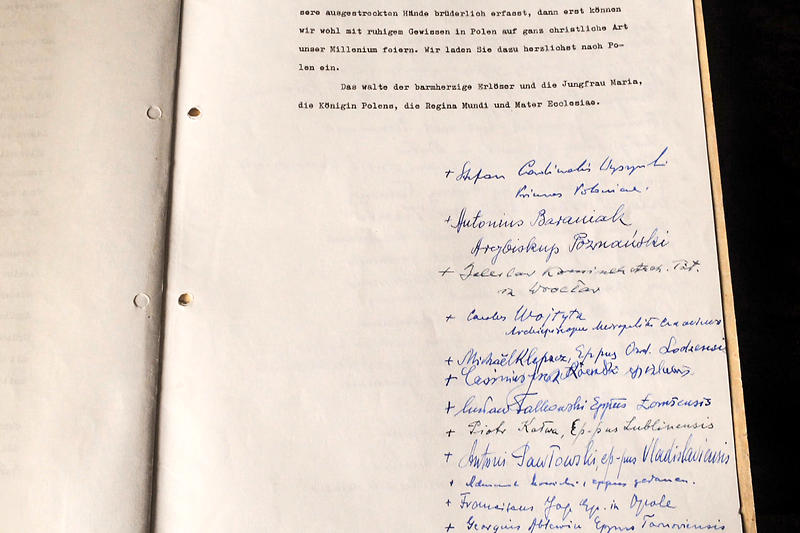 sere ausgestreckten Hände brüderlich erfasst, dann erst können
wir wohl mit ruhigem Gewissen in Polen auf ganz christliche Art
unser Millenium feiern. Wir laden Sie dazu herzlichst nach Po-
len ein.
Das walte der barmherzige Erlöser und die Jungfrau Maria,
die Königin Polens, die Regina Mundi und Mater Ecclesiae.
+ Stefan Cardinalis Wyszyński
Primas Poloniae.
+ Antonius Baraniak
Arcybiskup Poznański
+ Boleslaw
in Wrocław
+ Carolus Wojtyła
Archiepiscopus Metropolita Cracoviensis
+ Michaël Klepacz, Eppus Ord. Lodzensis
+ Casimirus
+ Czesław Falkowski Eppus Łomżensis
+ Piotr Kałwa, Ep-pus Lublinensis
+ Antoni Pawłowski, ep-pus Vladislaviensis
+ eppus gedanen.
+ Franciscus Jop Ep. in Opole
+ Georgius Ablewicz Eppus Tarnoviensis